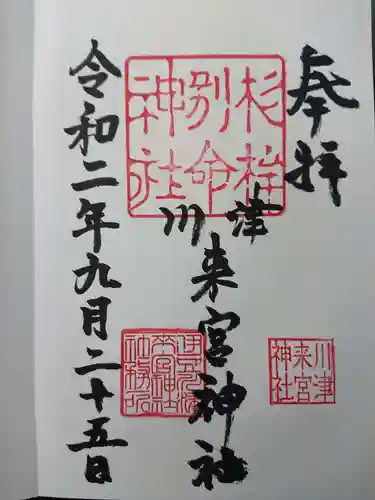 奉拝
川津
来宮神社
令和二年九月二十五日
杉桙
別命
神社
川津
来宮
神社